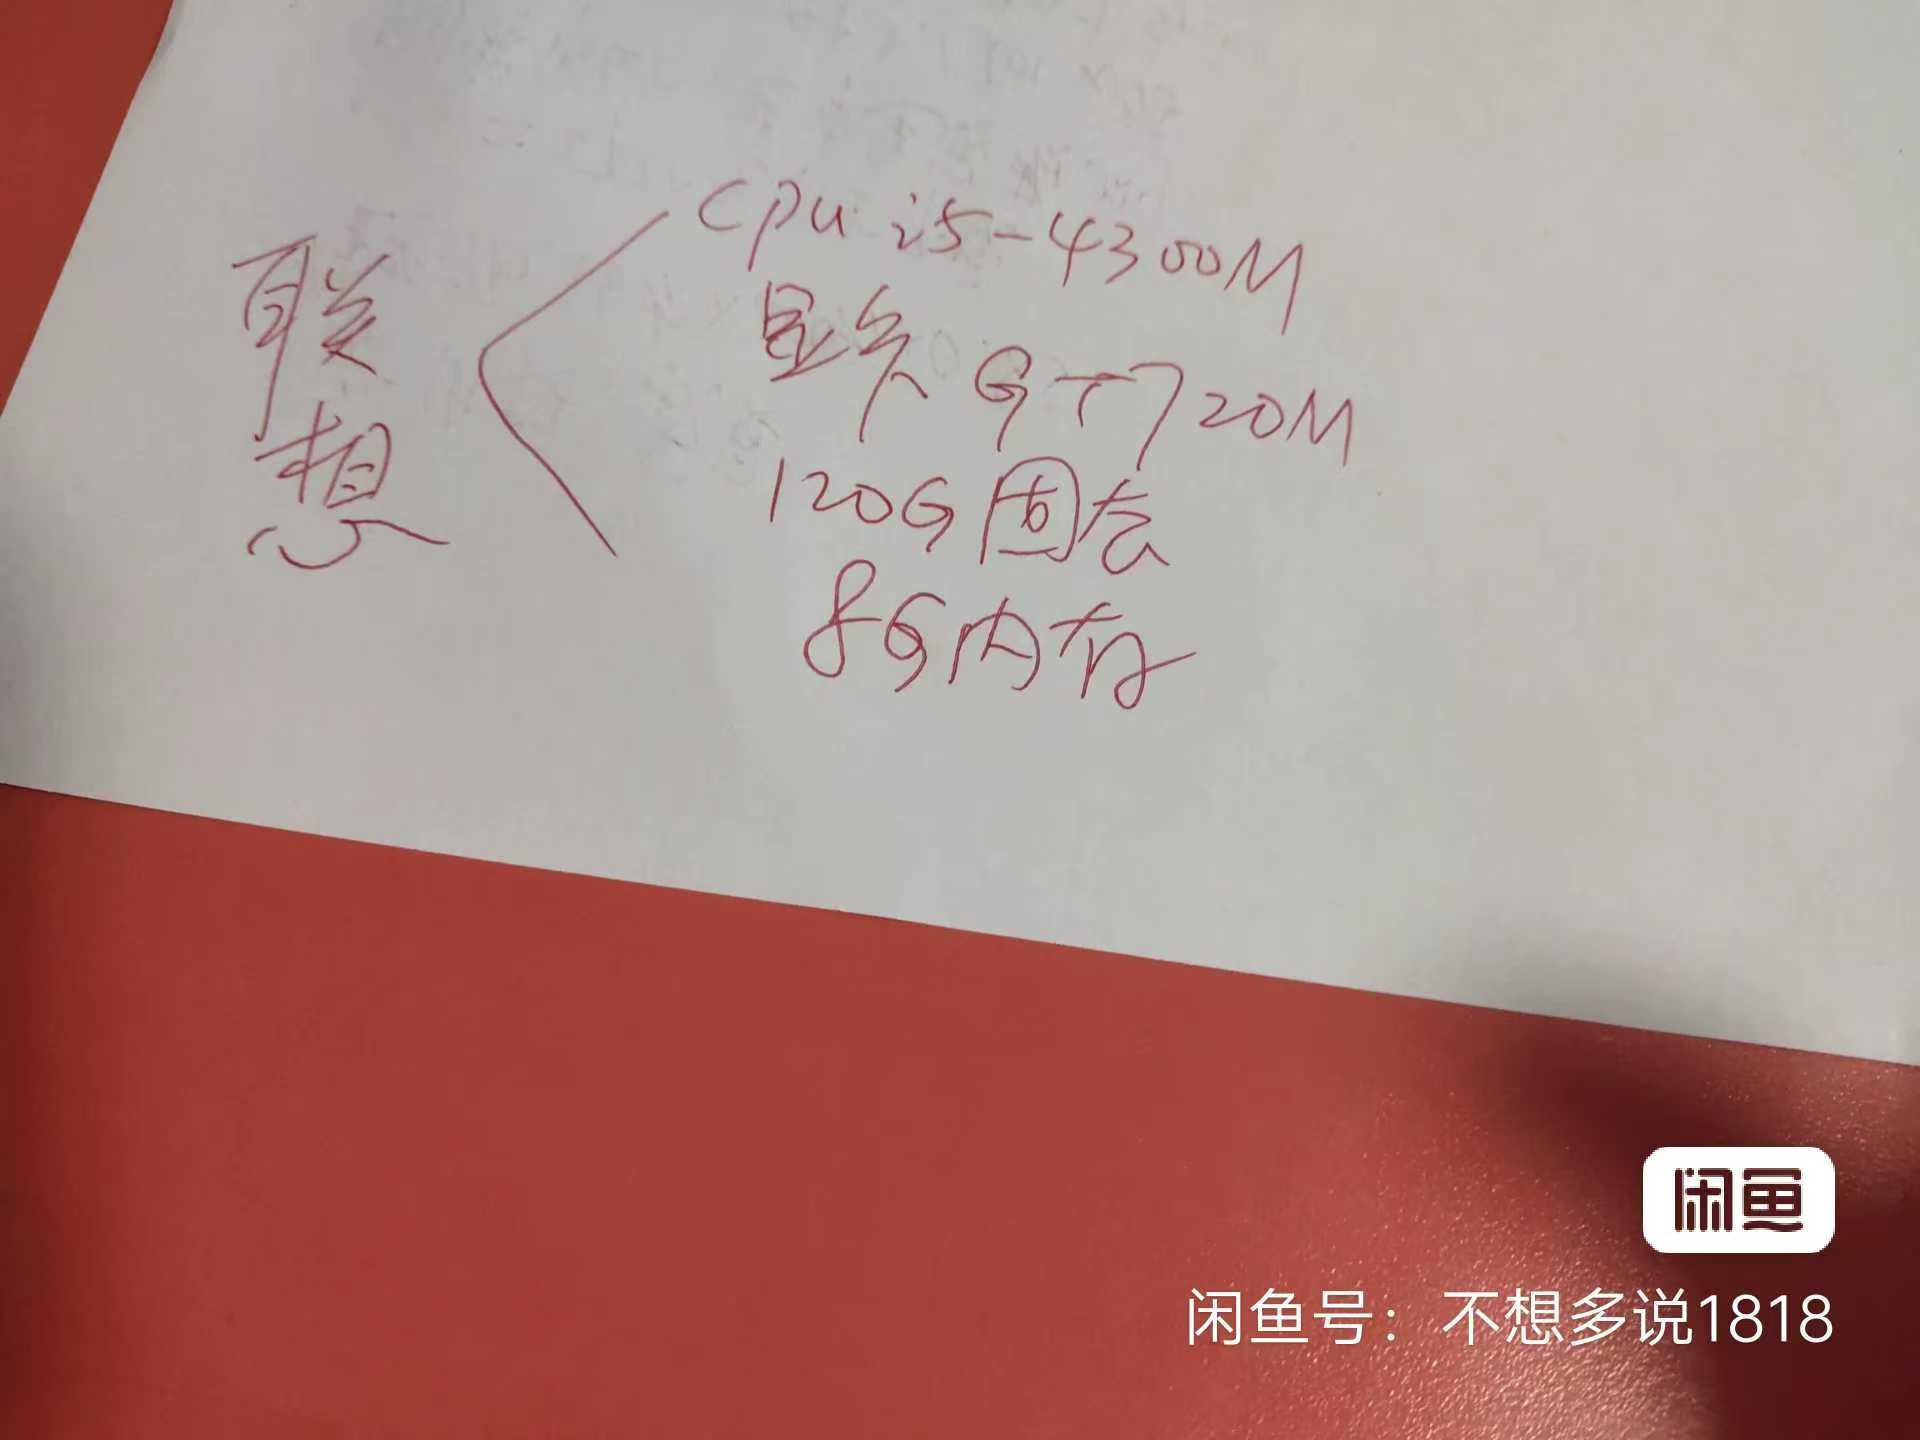 联想
cpu i5-4300M
显卡 GT720M
120G固态
8G内存
闲鱼
闲鱼号：不想多说1818